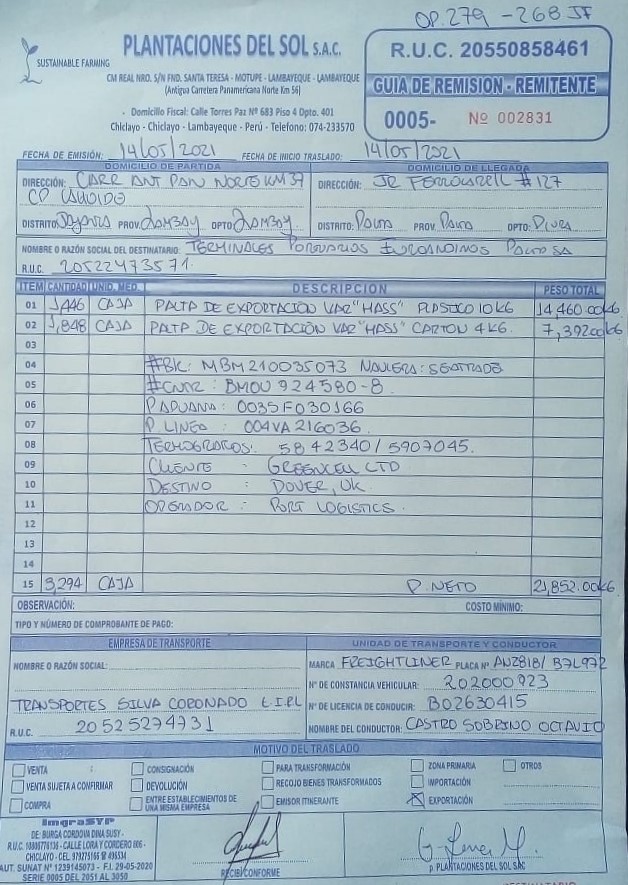 OP. 279 - 268 JF
SUSTAINABLE FARMING
PLANTACIONES DEL SOL S.A.C.
CM REAL NRO. S/N FND. SANTA TERESA - MOTUPE - LAMBAYEQUE - LAMBAYEQUE
(Antigua Carretera Panamericana Norte Km 56)
- Domicilio Fiscal: Calle Torres Paz Nº 683 Piso 4 Dpto. 401
Chiclayo - Chiclayo - Lambayeque - Perú - Telefono: 074-233570
R.U.C. 20550858461
GUIA DE REMISION - REMITENTE
0005- Nº 002831
FECHA DE EMISIÓN: 14/05/2021 FECHA DE INICIO TRASLADO: 14/05/2021
DOMICILIO DE PARTIDA DOMICILIO DE LLEGADA
DIRECCIÓN: CARR ANT PAN NORTE KM 37 DIRECCIÓN: JR FERROCARRIL #127
CP
DISTRITO: PROV. LAMBAY DPTO: LAMBAY. DISTRITO: PAITA PROV. PAITA DPTO: PIURA
NOMBRE O RAZÓN SOCIAL DEL DESTINATARIO: TERMINALES PORTUARIOS EUROANDINOS PAITA SA
R.U.C. 20522473571.
ITEM CANTIDAD UNID. MED. DESCRIPCION PESO TOTAL
01 1,446 CAJA PALTA DE EXPORTACIÓN VAR "HASS" PLASTICO 10 KG 14,460.00KG
02 1,848 CAJA PALTA DE EXPORTACIÓN VAR "HASS" CARTON 4 KG. 7,392.00KG
03
04 #BK: MBM210035073 NAVIERA: SEATRADE
05 #CNTR: BMOU 924580-8
06 P. ADUANA: 0035F030166
07 P. LINEA: 004VA216036
08 TERMOGRAFOS: 5842340/5907045.
09 CLIENTE : GREENCELL LTD
10 DESTINO : DOVER, UK
11 OPERADOR : PORT LOGISTICS.
12
13
14
15 3,294 CAJA P. NETO 21,852.00KG
OBSERVACIÓN: COSTO MÍNIMO:
TIPO Y NÚMERO DE COMPROBANTE DE PAGO:
EMPRESA DE TRANSPORTE UNIDAD DE TRANSPORTE Y CONDUCTOR
NOMBRE O RAZÓN SOCIAL: MARCA FREIGHTLINER PLACA Nº ANZ818/B7L972
Nº DE CONSTANCIA VEHICULAR: 202000923
TRANSPORTES SILVA CORONADO E.I.R.L Nº DE LICENCIA DE CONDUCIR: B02630415
R.U.C. 20525274731 NOMBRE DEL CONDUCTOR: CASTRO SOBRINO OCTAVIO
MOTIVO DEL TRASLADO
VENTA CONSIGNACIÓN PARA TRANSFORMACIÓN ZONA PRIMARIA OTROS
VENTA SUJETA A CONFIRMAR DEVOLUCIÓN RECOJO BIENES TRANSFORMADOS IMPORTACIÓN
COMPRA ENTRE ESTABLECIMIENTOS DE UNA MISMA EMPRESA EMISOR ITINERANTE X EXPORTACIÓN
ImgraSYP
DE: BURGA CORDOVA DINA SUSY -
R.U.C. 10805776136 - CALLE LORA Y CORDERO 006 -
CHICLAYO - CEL. 979275166 # 496534
AUT. SUNAT Nº 1239145073 - F.I. 29-05-2020
SERIE 0005 DEL 2051 AL 3050
RECIBI CONFORME
p. PLANTACIONES DEL SOL SAC
DESTINATARIO